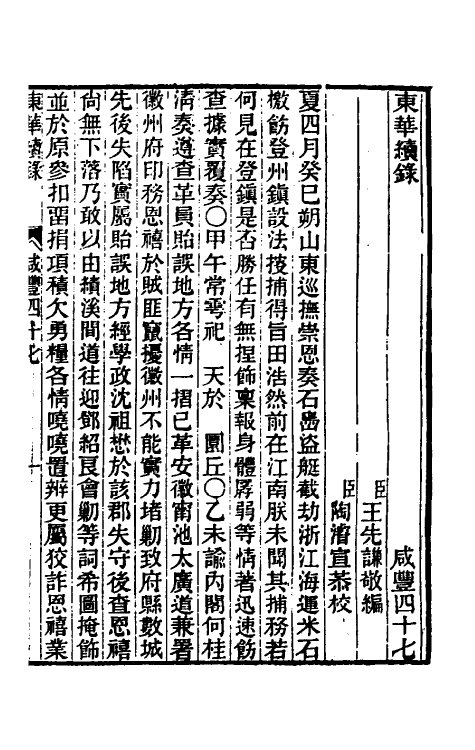 東華續錄　咸豐四十七
臣王先謙敬編
臣陶濬宣恭校
夏四月癸巳朔山東巡撫崇恩奏石島盜艇截劫浙江海運米石
檄飭登州鎮設法搜捕得旨田浩然前在江南朕未聞其捕務若
何見在登鎮是否勝任有無捏飾稟報身體孱弱等情著迅速飭
查據實覆奏○甲午常雩祀　天於　圜丘○乙未諭內閣何桂
清奏遵查革員貽誤地方各情一摺已革安徽甯池太廣道兼署
徽州府印務恩禧於賊匪竄擾徽州不能實力堵勦致府縣數城
先後失陷實屬貽誤地方經學政沈祖懋於該郡失守後查恩禧
尙無下落乃敢以由績溪間道往迎鄧紹良會勦等詞希圖掩飾
並於原參扣畱捐項積欠勇糧各情嘵嘵置辨更屬狡詐恩禧業
東華續錄　咸豐四十七　一